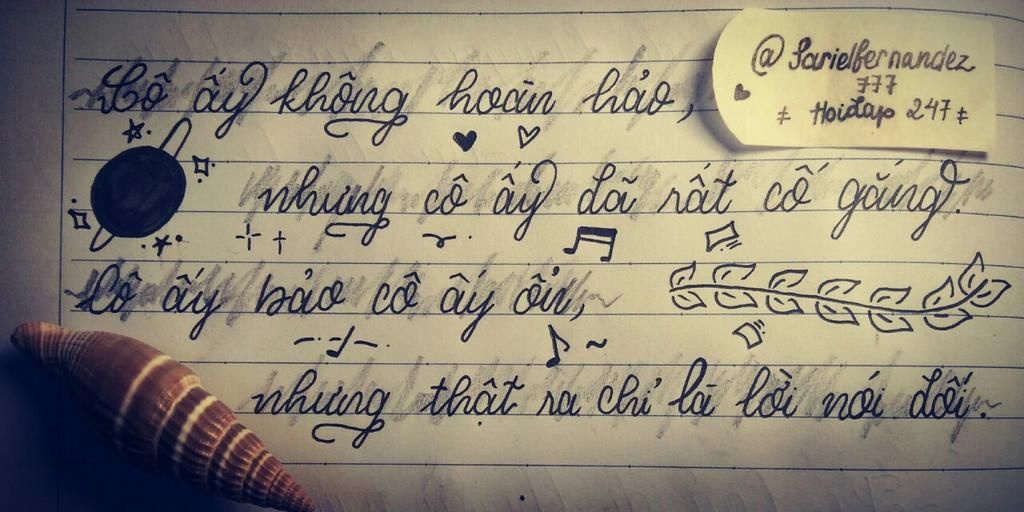 Cô ấy không hoàn hảo,
nhưng cô ấy đã rất cố gắng.
Cô ấy bảo cô ấy ổn,
nhưng thật ra chỉ là lời nói dối.
@Sarielfernandez
777
≠ Hoidap 247 ≠